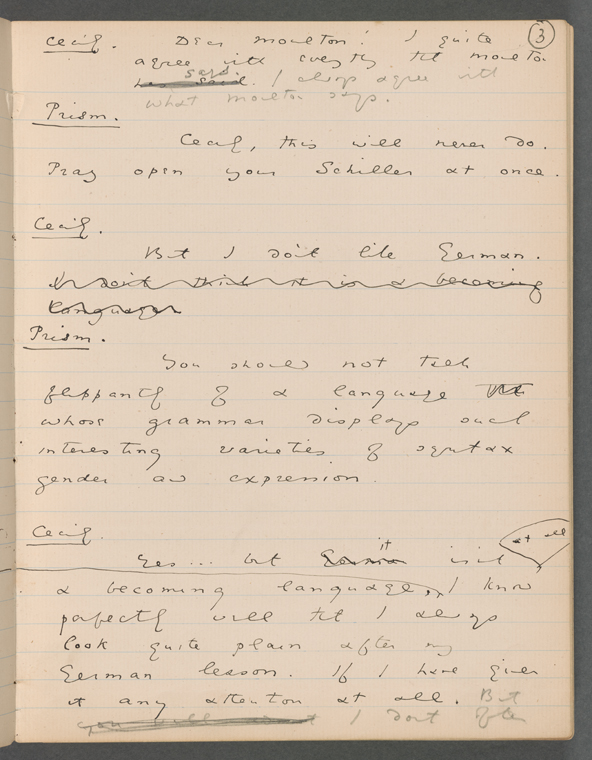 3
Cecily. Dear Moulton! I quite
agree with everything that Moulton
said.
has said. I always agree with
what Moulton says.
Prism.
Cecily, this will never do.
Pray open your Schiller at once.
Cecily.
But I don't like German.
I don't think it is a becoming
language
Prism.
You should not talk
flippantly of a language
whose grammar displays such
interesting varieties of syntax
gender and expression.
Cecily.
it at all
Yes... but German isn't
a becoming language, I know
perfectly well that I always
look quite plain after my
German lesson. If I have given
it any attention at all. But
I don't often